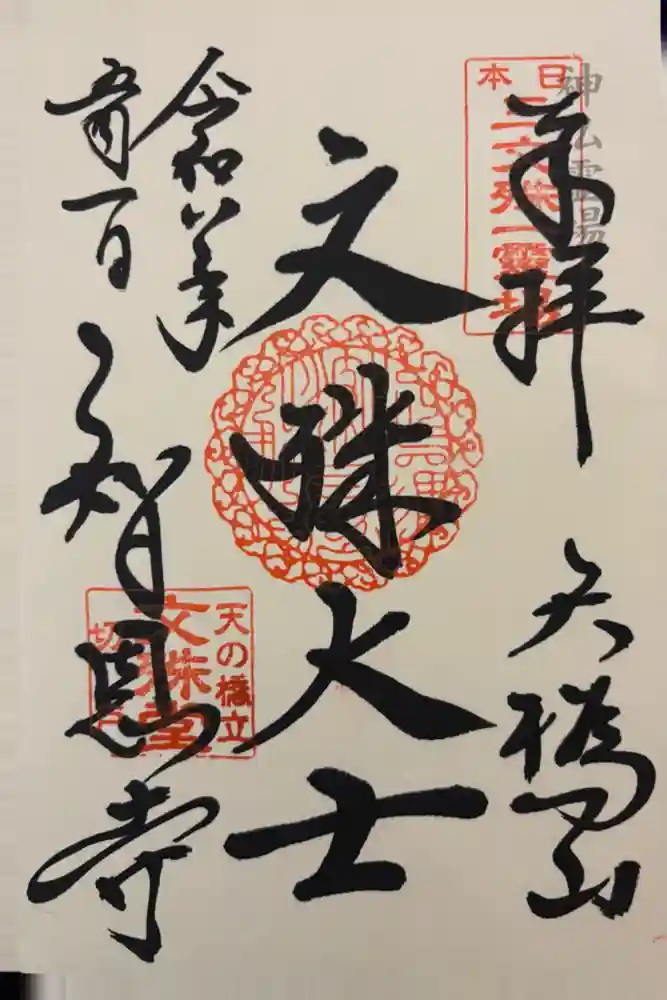 神仏霊場
日本
三文殊一靈場
奉拝
天橋山
文殊大士
令和八年
五月一日
智恩寺
天の橋立
文殊堂
切戸